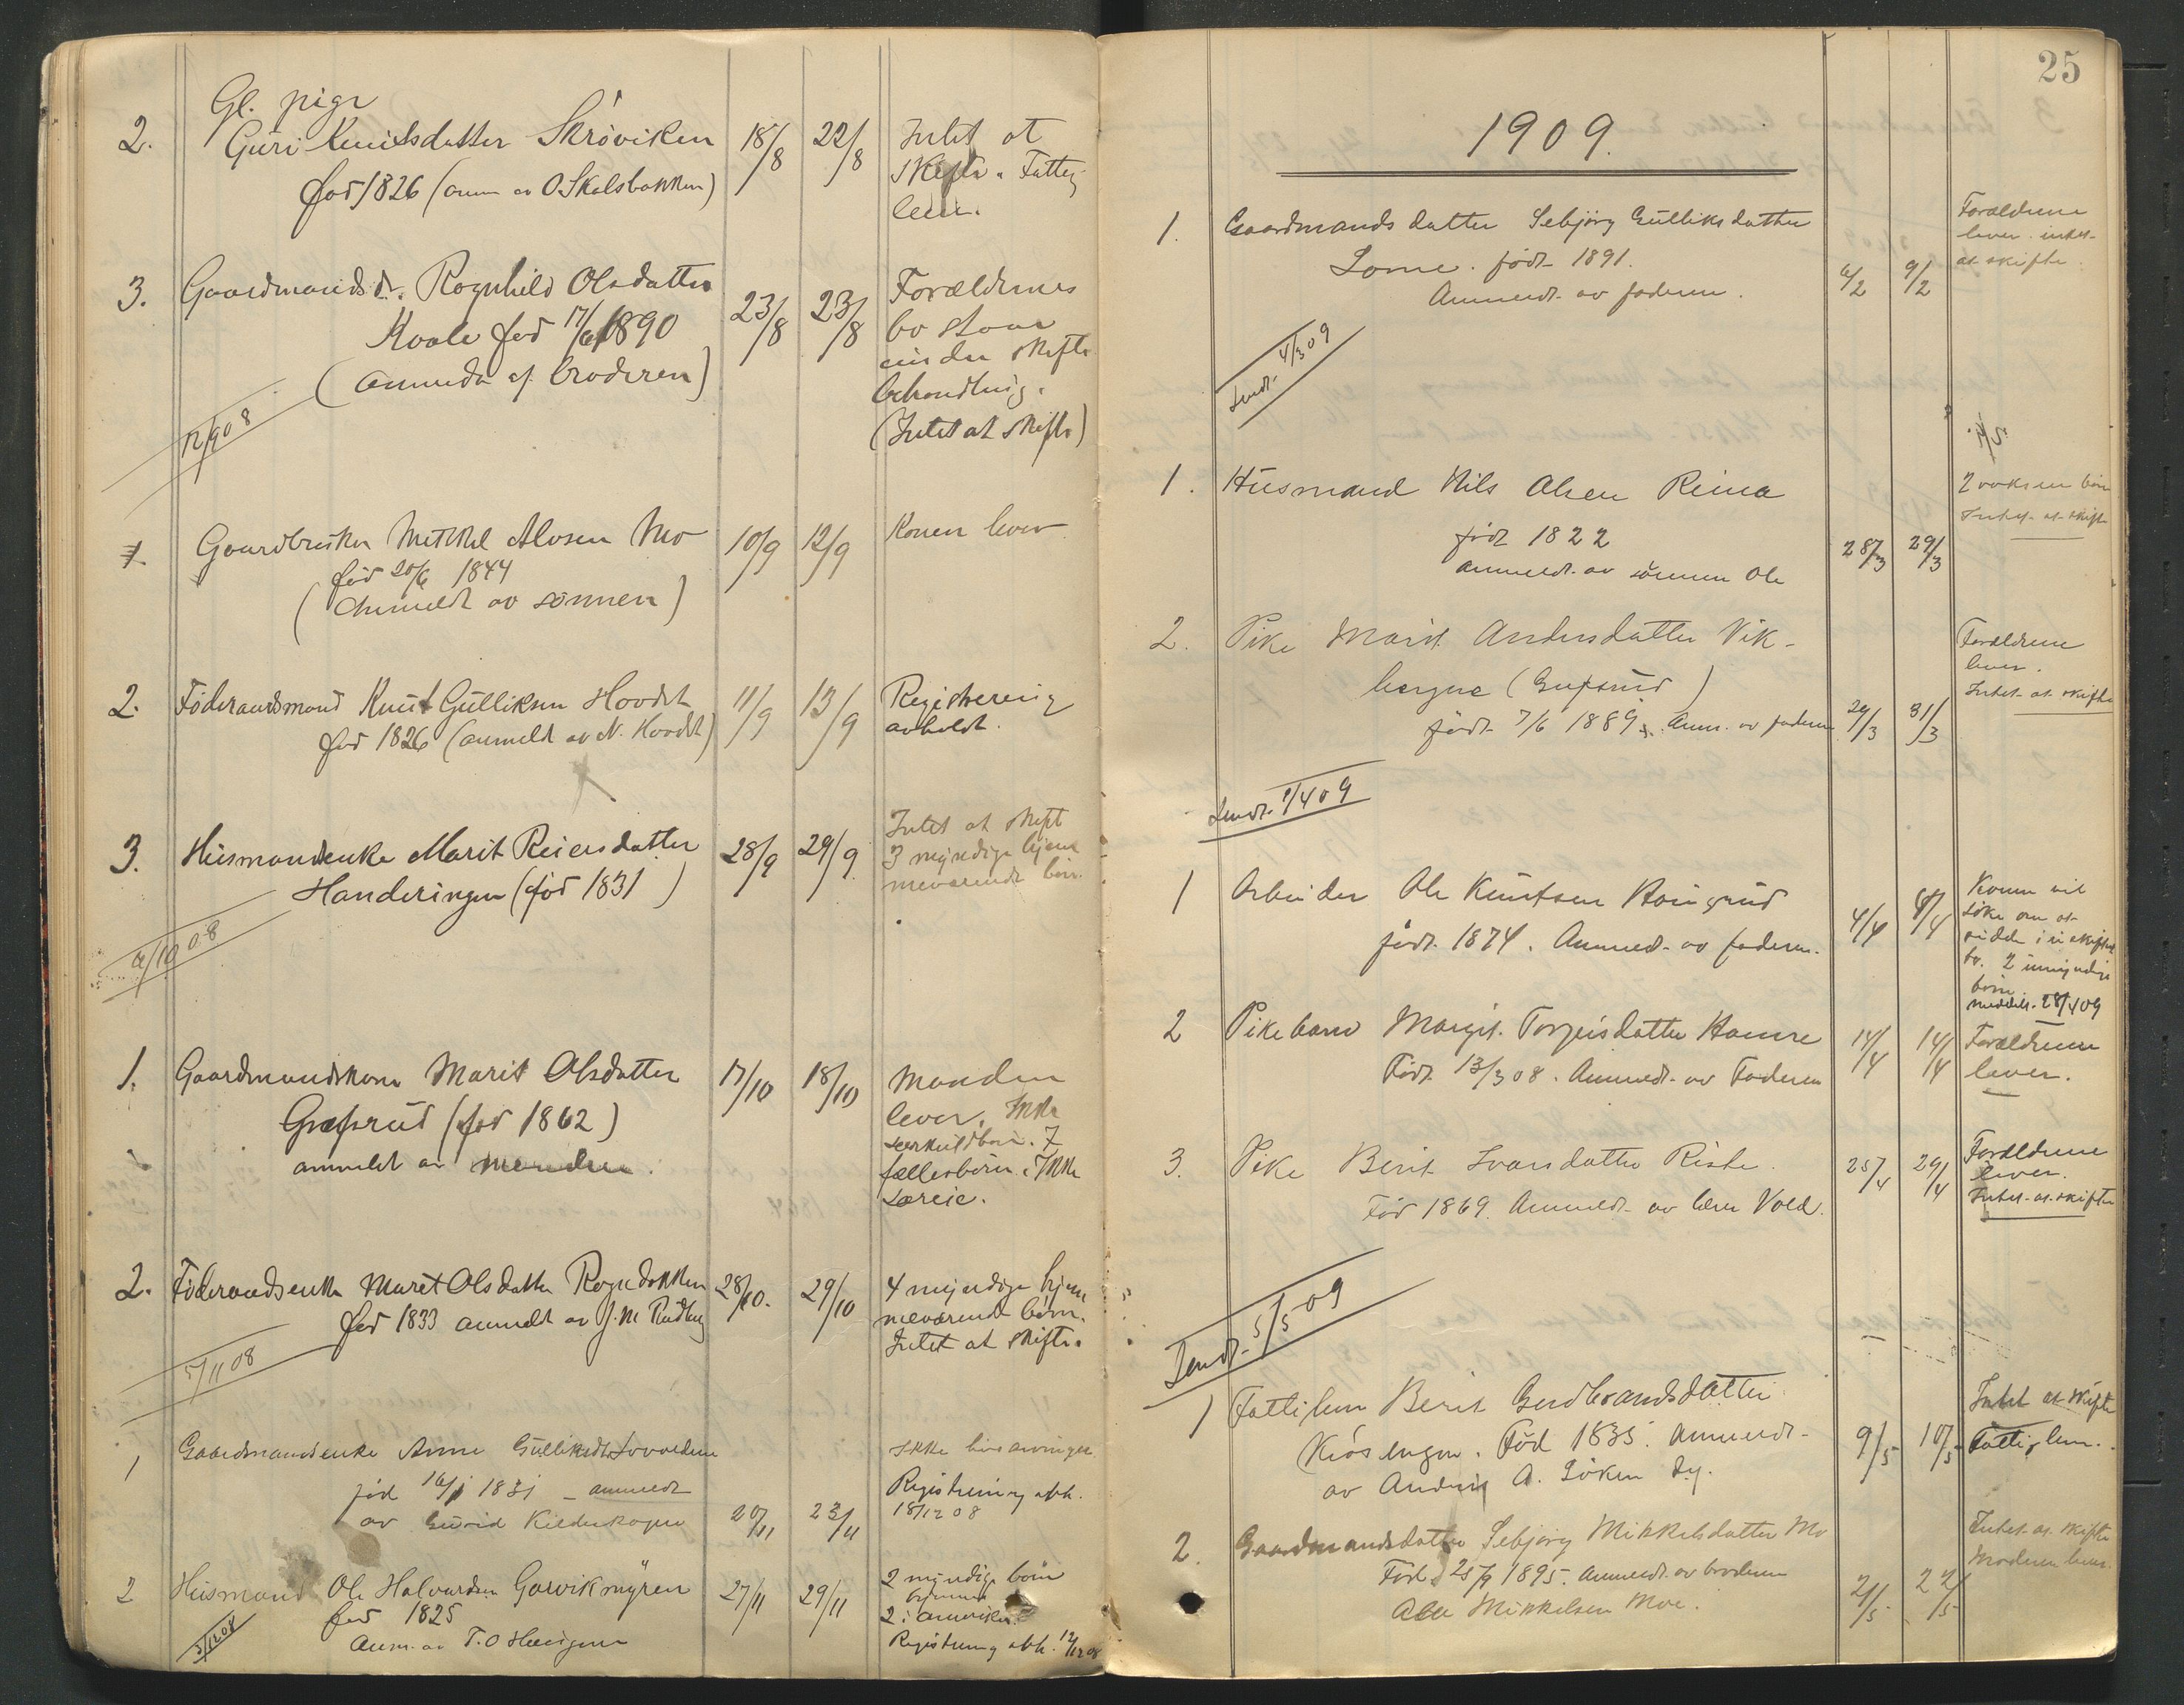 Gl. pige
2. Guri Knutsdatter Skrøviken 18/8 22/8 Intet at
fød 1826 (anm av O. Skalsbakken) skifte. Fattig
lem.
3. Gaardmandsd. Ragnhild Olsdatter 23/8 23/8 Forældrenes
Kvale fød 17/6 1890 bo staar
(anmeldt af broderen) under skifte
behandling.
(Intet at skifte)
12/9 08
1. Gaardbruker Mikkel Alvsen Mo 10/9 12/9 Konen lever
fød 20/6 1844
(anmeldt av sønnen)
2. Føderaadsmand Knut Gulliksen Hovdet 11/9 13/9 Registrering
fød 1826 (anmeldt av N. Hovdet) avholdt.
3. Husmandsenke Marit Reiersdatter 28/9 29/9 Intet at skift
Handeringen (fød 1831) 3 myndige hjem
meværende børn.
6/10 08
1. Gaardmandskone Marit Olsdatter 17/10 18/10 Manden
Græfsrud (fød 1862) lever. Ikke
anmeldt av manden. særkuldbørn. 7
fællesbørn. Ikke
særeie.
2. Føderaadsenke Marit Olsdatter Rognebakken 28/10. 29/10 4 myndige hjem
fød 1833 anmeldt av J. M. Rudberg meværende børn.
Intet at skifte.
5/11 08
1 Gaardmandsenke Anne Gulliksdtr. Ikke livsarvinger
fød 16/1 1831 - anmeldt Registrering afh.
av Gurid 20/11 23/11 18/12 08
2 Husmand Ole Halvordsen Garvikmyren 27/11 29/11 2 myndige børn
fød 1825 hjemme
Anm. av T. O. 2 i Amerika.
3/12 08 Registrering afh. 12/12 08
25
1909.
1. Gaardmandsdatter Sebjørg Gulliksdatter Forældrene
Lome. født 1891. 6/2 9/2 lever. intet
Anmeldt av faderen. at skifte.
Sendt 4/3 09
1. Husmand Nils Olsen Reina 2 voksne børn
født 1822 28/3 29/3 Intet at skifte
anmeldt av sønnen Ole
2. Pike Marit Andersdatter Vik- Forældrene
bergne (Gufsrud) lever.
født 7/6 1889. Anm. av faderen 29/3 31/3 Intet at skifte
Sendt 1/4 09
1 Arbeider Ole Knutsen 4/4 8/4 Konen vil
født 1874. Anmeldt av faderen. søke om at
sidde i uskiftet
bo. 2 umyndige
børn
meddelt 28/4 09
2 Pikebarn Margit Torgeisdatter Hamre 14/4 14/4 Forældrene
Født 13/3 08. Anmeldt av Faderen lever.
3. Pike Berit Ivarsdatter Riste. 25/4 29/4 Forældrene
Fød 1869. Anmeldt av lærer Vold. lever.
Intet at skifte
Sendt 5/5 09
1 Fattiglem Berit Gudbrandsdatter Intet at skifte
Fød 1835. Anmeldt 9/5 10/5 Fattiglem.
av Andris A. Løken
2. Gaardmandsdatter Sebjørg Mikkelsdatter Mo Intet at skifte
Født 25/7 1895. Anmeldt av broderen Moderen lever.
Alv Mikkelsen Moe. 21/5 22/5